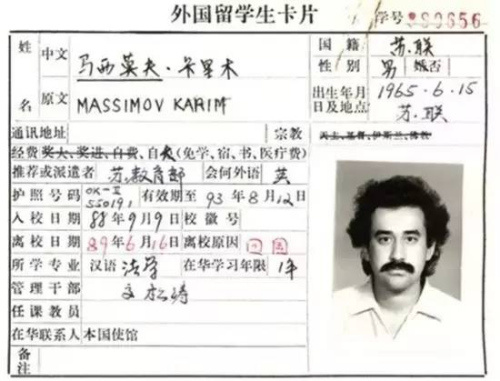 外国留学生卡片 学号 880656
姓名 中文 马西莫夫·卡里木 国籍 苏联
性别 男 婚否
原文 MASSIMOV KARIM 出生年月日及地点 1965-6-15 苏联
通讯地址 宗教 天主,基督,伊斯兰,佛教
经费 奖大,奖进,自费,自大(免学、宿、书、医疗费)
推荐或派遣者 苏教育部 会何外语 英
护照号码 有效期至 93年8月12日
入校日期 88年9月9日 校徽号
离校日期 89年6月16日 离校原因 回国
所学专业 汉语 法学 在华学习年限 1年
管理干部
任课教员
在华联系人 本国使馆
备注